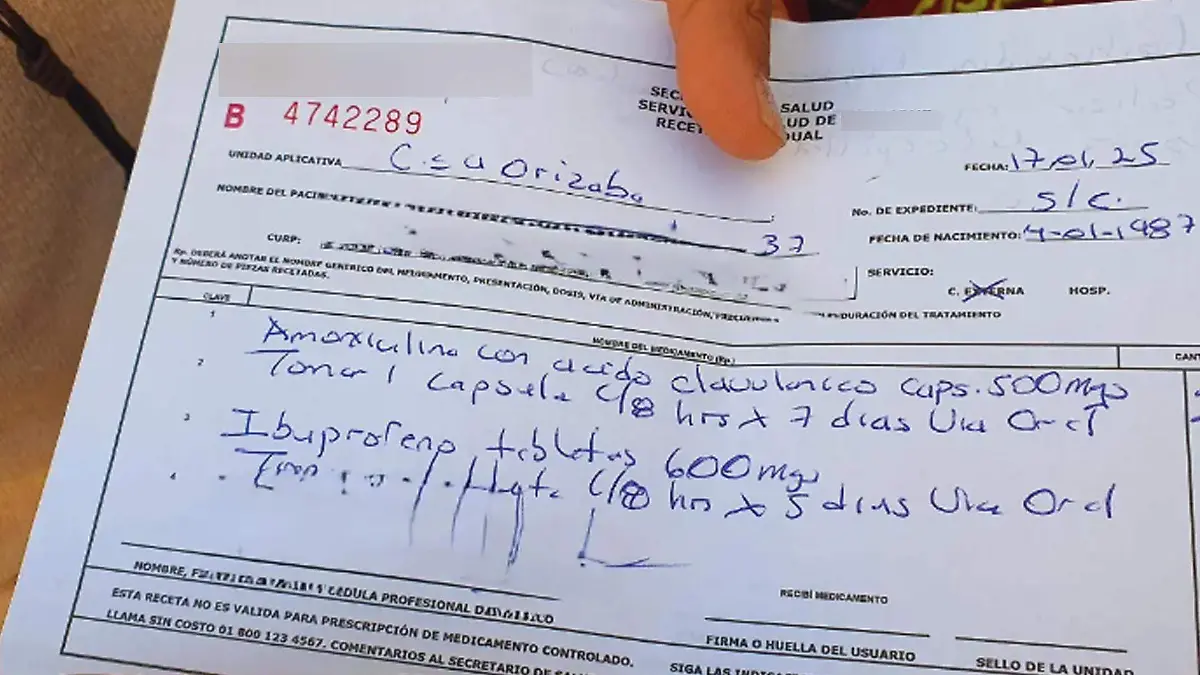 B 4742289
SALUD
SERVI UD DE
RECET UAL
UNIDAD APLICATIVA C.S.U Orizaba
FECHA: 17.01.25
No. DE EXPEDIENTE: S/C.
NOMBRE DEL 37
FECHA DE NACIMIENTO: -01-1987
CURP:
SERVICIO:
C. EXTERNA HOSP.
Rp. DEBERÁ ANOTAR EL NOMBRE GENÉRICO DEL MEDICAMENTO, PRESENTACIÓN, DOSIS, VÍA DE ADMINISTRACIÓN, DURACIÓN DEL TRATAMIENTO
Y NÚMERO DE PIEZAS RECETADAS.
CLAVE NOMBRE DEL MEDICAMENTO (Rp.) CANT
1 Amoxiculina con acido clavulanico caps. 500mgs
2 Tomar 1 capsula c/8 hrs x 7 dias Via Oral
3 Ibuprofeno tabletas 600mgs
4 c/8 hrs x 5 dias Via Oral
NOMBRE, CÉDULA PROFESIONAL
RECIBÍ MEDICAMENTO
ESTA RECETA NO ES VALIDA PARA PRESCRIPCIÓN DE MEDICAMENTO CONTROLADO.
FIRMA O HUELLA DEL USUARIO
SELLO DE LA UNIDAD
LLAMA SIN COSTO 01 800 123 4567. COMENTARIOS AL SECRETARIO DE
SIGA LAS